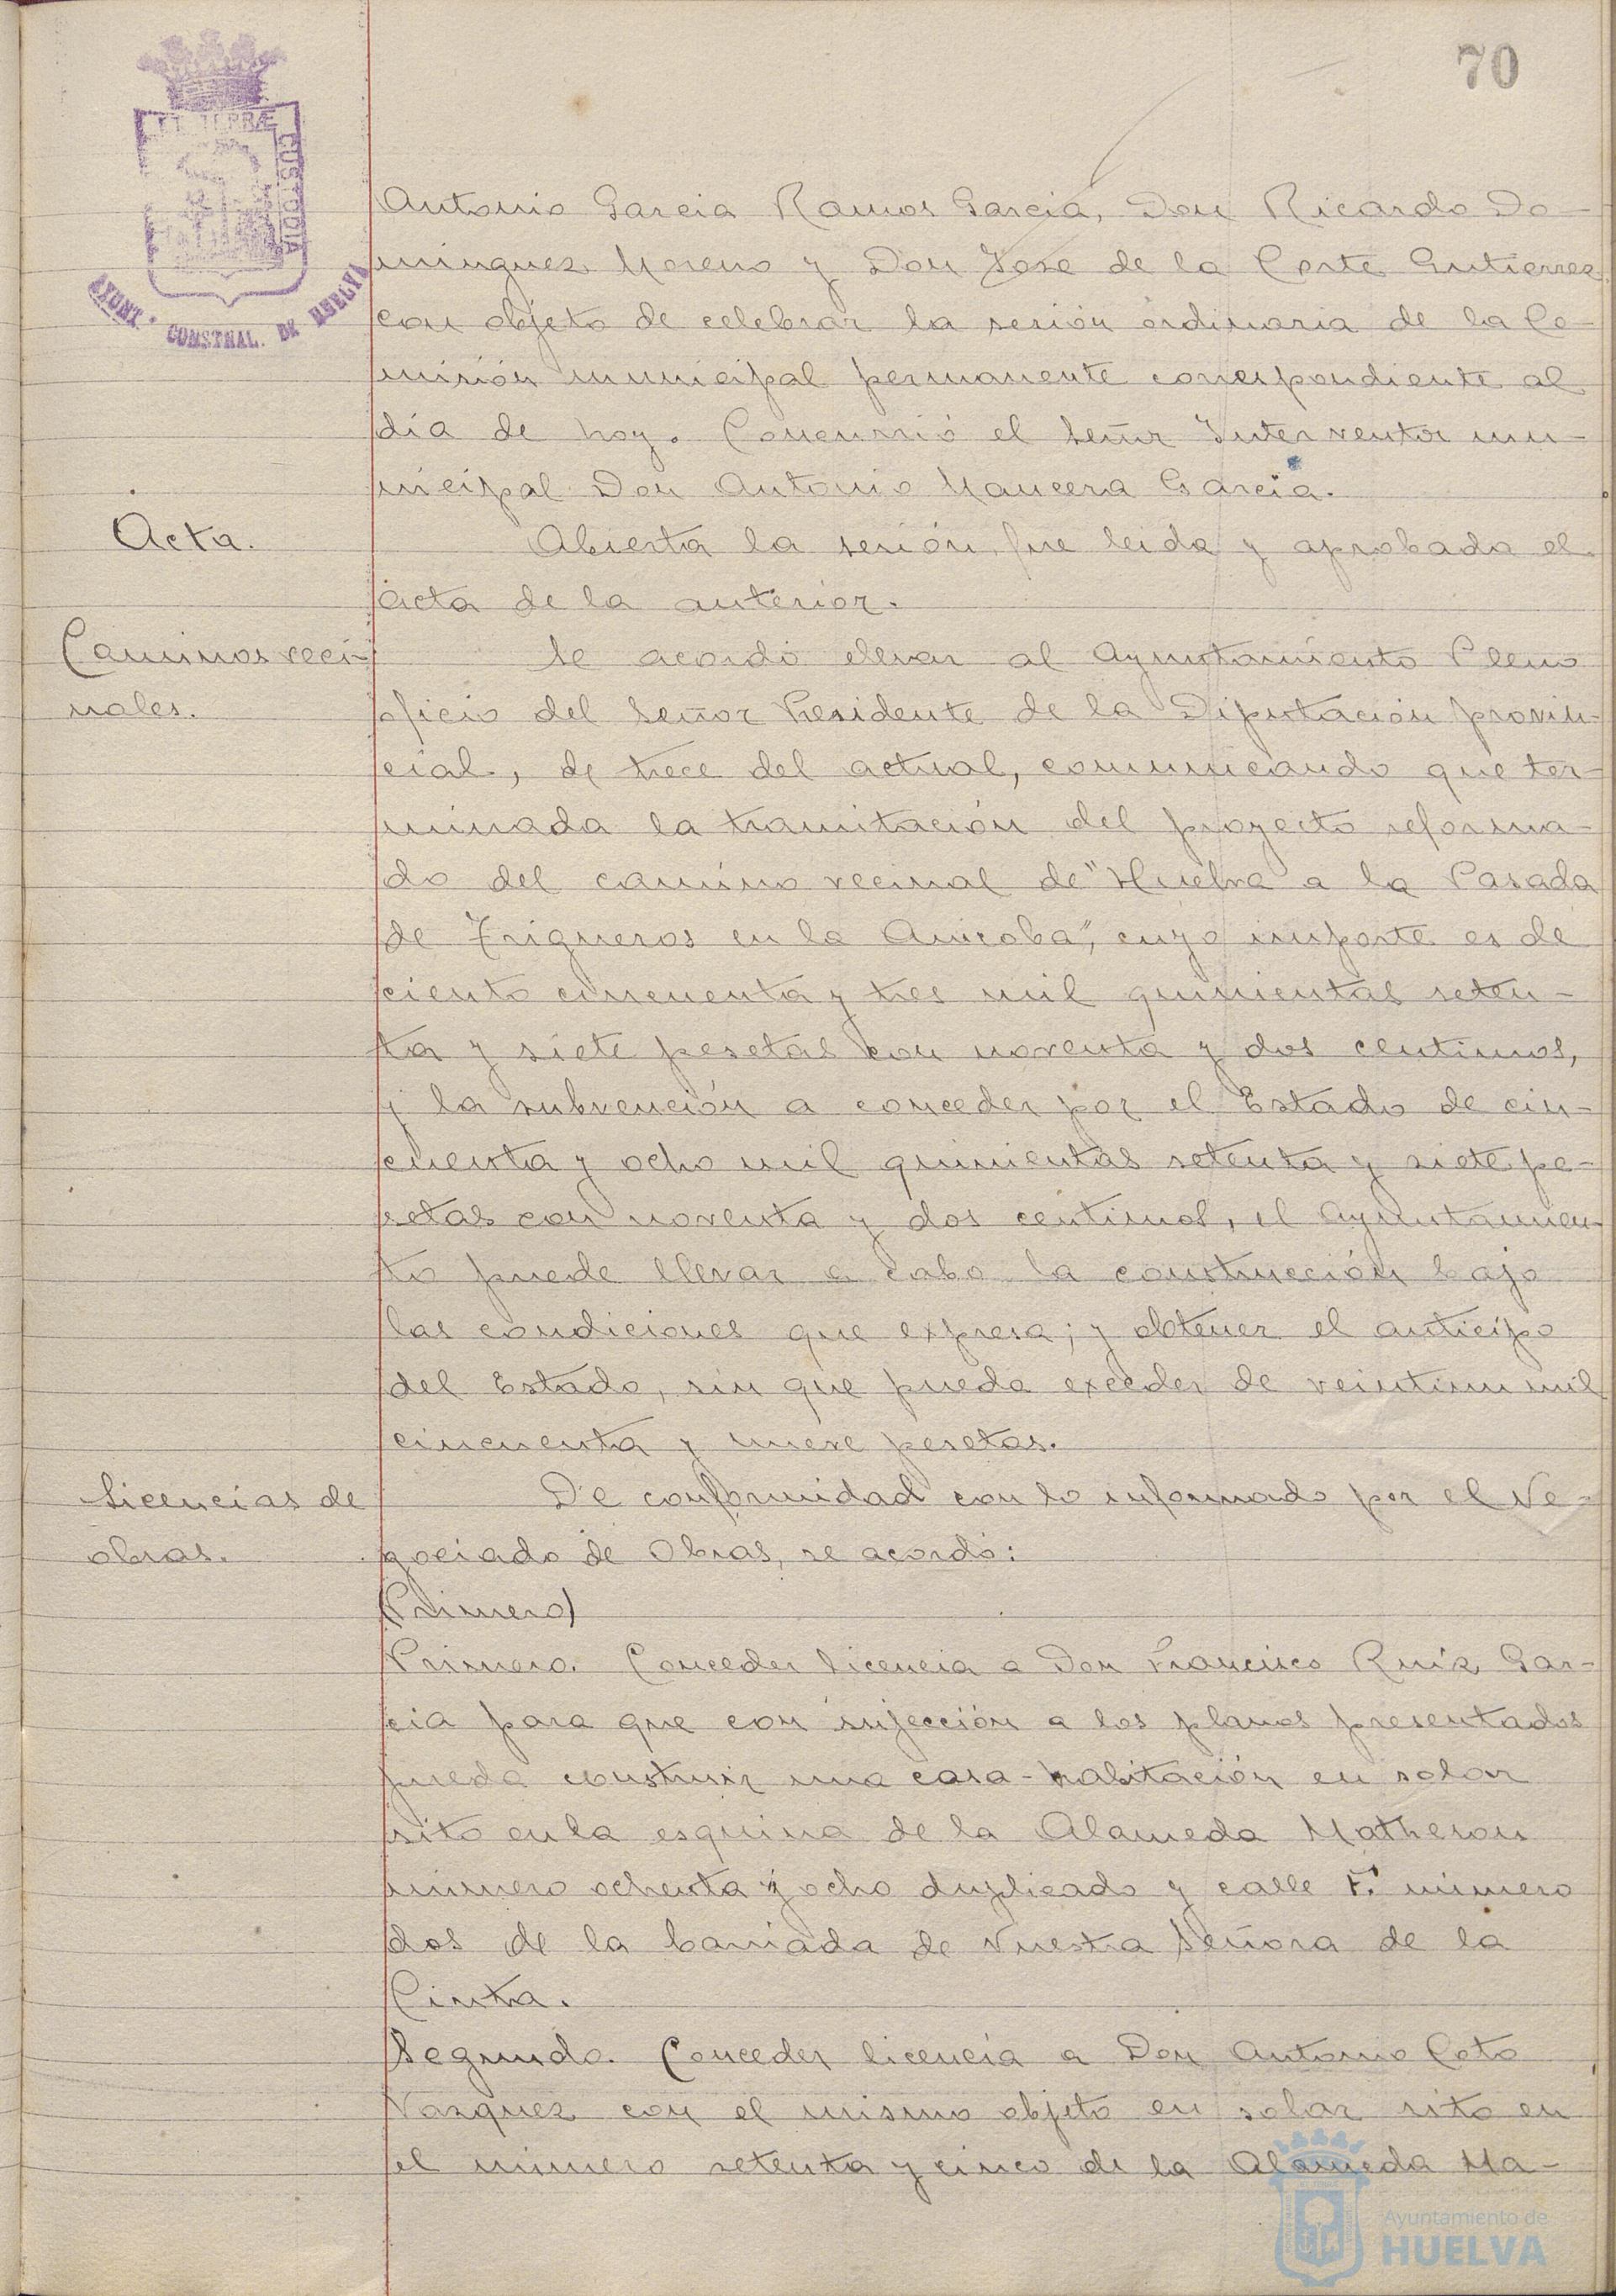 70
ET TERRÆ
CUSTODIA
AYUNT. CONSTNAL. DE HUELVA
Antonio Garcia Ramos Garcia, Don Ricardo Do-
minguez Moreno y Don Jose de la Corte Gutierrez
con objeto de celebrar la sesión ordinaria de la Co-
misión municipal permanente correspondiente al
día de hoy. Concurrió el Señor Interventor mu-
nicipal Don Antonio Mancera Garcia.
Acta.
Abierta la sesión, fue leida y aprobada el
acta de la anterior.
Caminos veci-
nales.
Se acordó elevar al Ayuntamiento Pleno
oficio del Señor Presidente de la Diputación provin-
cial, de trece del actual, comunicando que ter-
minada la tramitación del proyecto reforma-
do del camino vecinal de "Huelva a la Pasada
de Trigueros en la Anicoba", cuyo importe es de
ciento cincuenta y tres mil quinientas seten-
ta y siete pesetas con noventa y dos centimos,
y la subvención a conceder por el Estado de cin-
cuenta y ocho mil quinientas setenta y siete pe-
setas con noventa y dos centimos, el Ayuntamien-
to puede llevar a cabo la construcción bajo
las condiciones que expresa; y obtener el anticipo
del Estado, sin que pueda exceder de veintiun mil
cincuenta y nueve pesetas.
Licencias de
obras.
De conformidad con lo informado por el Ne-
gociado de Obras, se acordó:
(Primero)
Primero. Conceder licencia a Don Francisco Ruiz Gar-
cia para que con sujección a los planos presentados
pueda construir una casa-habitación en solar
sito en la esquina de la Alameda Matheson
número ochenta y ocho duplicado y calle F. número
dos de la barriada de Nuestra Señora de la
Cinta.
Segundo. Conceder licencia a Don Antonio Coto
Vazquez con el mismo objeto en solar sito en
el número setenta y cinco de la Alameda Ma-
Ayuntamiento de
HUELVA